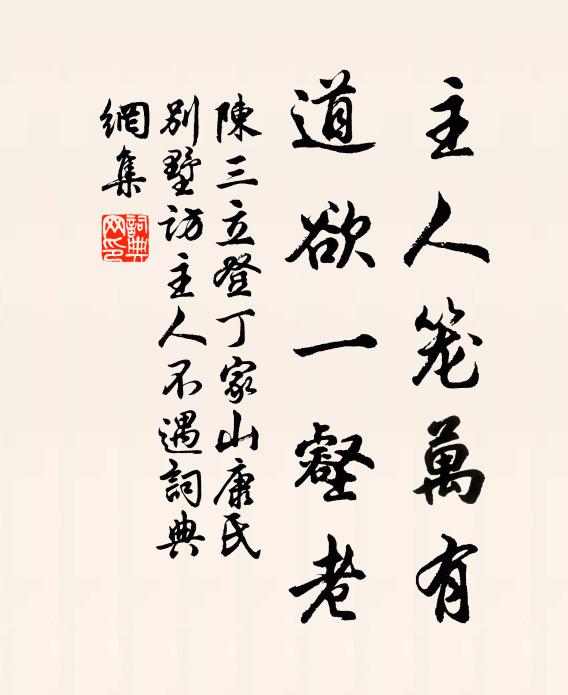 主人笼萬有
道欲一壑老
陳三立登丁家山康氏
别墅访主人不遇詞典
網集
詞典
网印